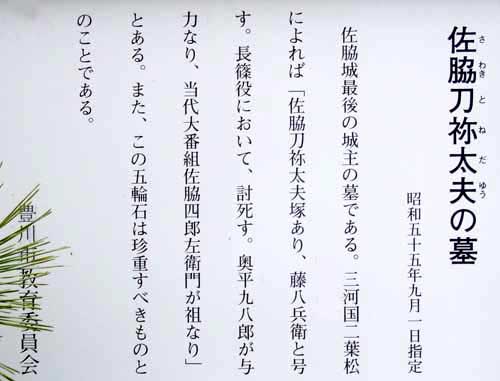 佐脇刀祢太夫の墓
さわきとねだゆう
昭和五十五年九月一日指定
佐脇城最後の城主の墓である。三河国二葉松
によれば「佐脇刀祢太夫塚あり、藤八兵衛と号
す。長篠役において、討死す。奥平九八郎が与
力なり、当代大番組佐脇四郎左衛門が祖なり」
とある。また、この五輪石は珍重すべきものと
のことである。
豊川市教育委員会